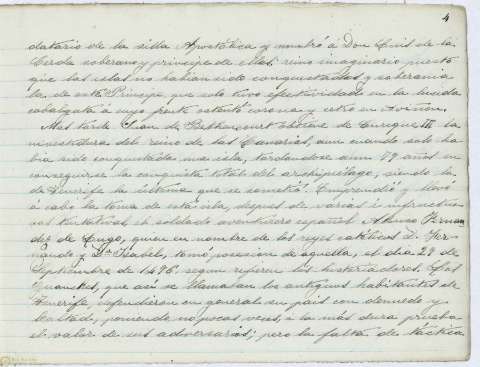 4
datario de la silla Apostólica y nombró á Don Luis de la
Cerda soberano y principe de ellas; reino imaginario puesto
que las islas no habian sido conquistadas, y soberania
la de este Principe que solo tuvo efectividad en la lucida
cabalgata á cuyo frente ostentó corona y cetro en Aviñon.
Mas tarde Juan de Bethencourt obtiene de Enrique III la
investidura del reino de las Canarias, aun cuando solo ha
bia sido conquistada una isla, tardandose aun 79 años en
conseguirse la conquista total del archipielago, siendo la
de Tenerife la última que se sometió. Emprendió y llevó
á cabo la toma de esta isla, depues de varias é infructuo
sas tentativas, el soldado aventurero español Alonso Fernan
dez de Lugo, quien en nombre de los reyes católicos Dn Fer
nando y Dª Isabel, tomó posesion de aquella, el dia 29 de
Septiembre de 1496, segun refieren los historiadores. Los
Guanches, que asi se llamaban los antiguos habitantes de
Tenerife, defendieron en general su pais con denuedo y
lealtad, poniendo no pocas veces, á la mas dura prueba
el valor de sus adversarios; pero la falta de táctica